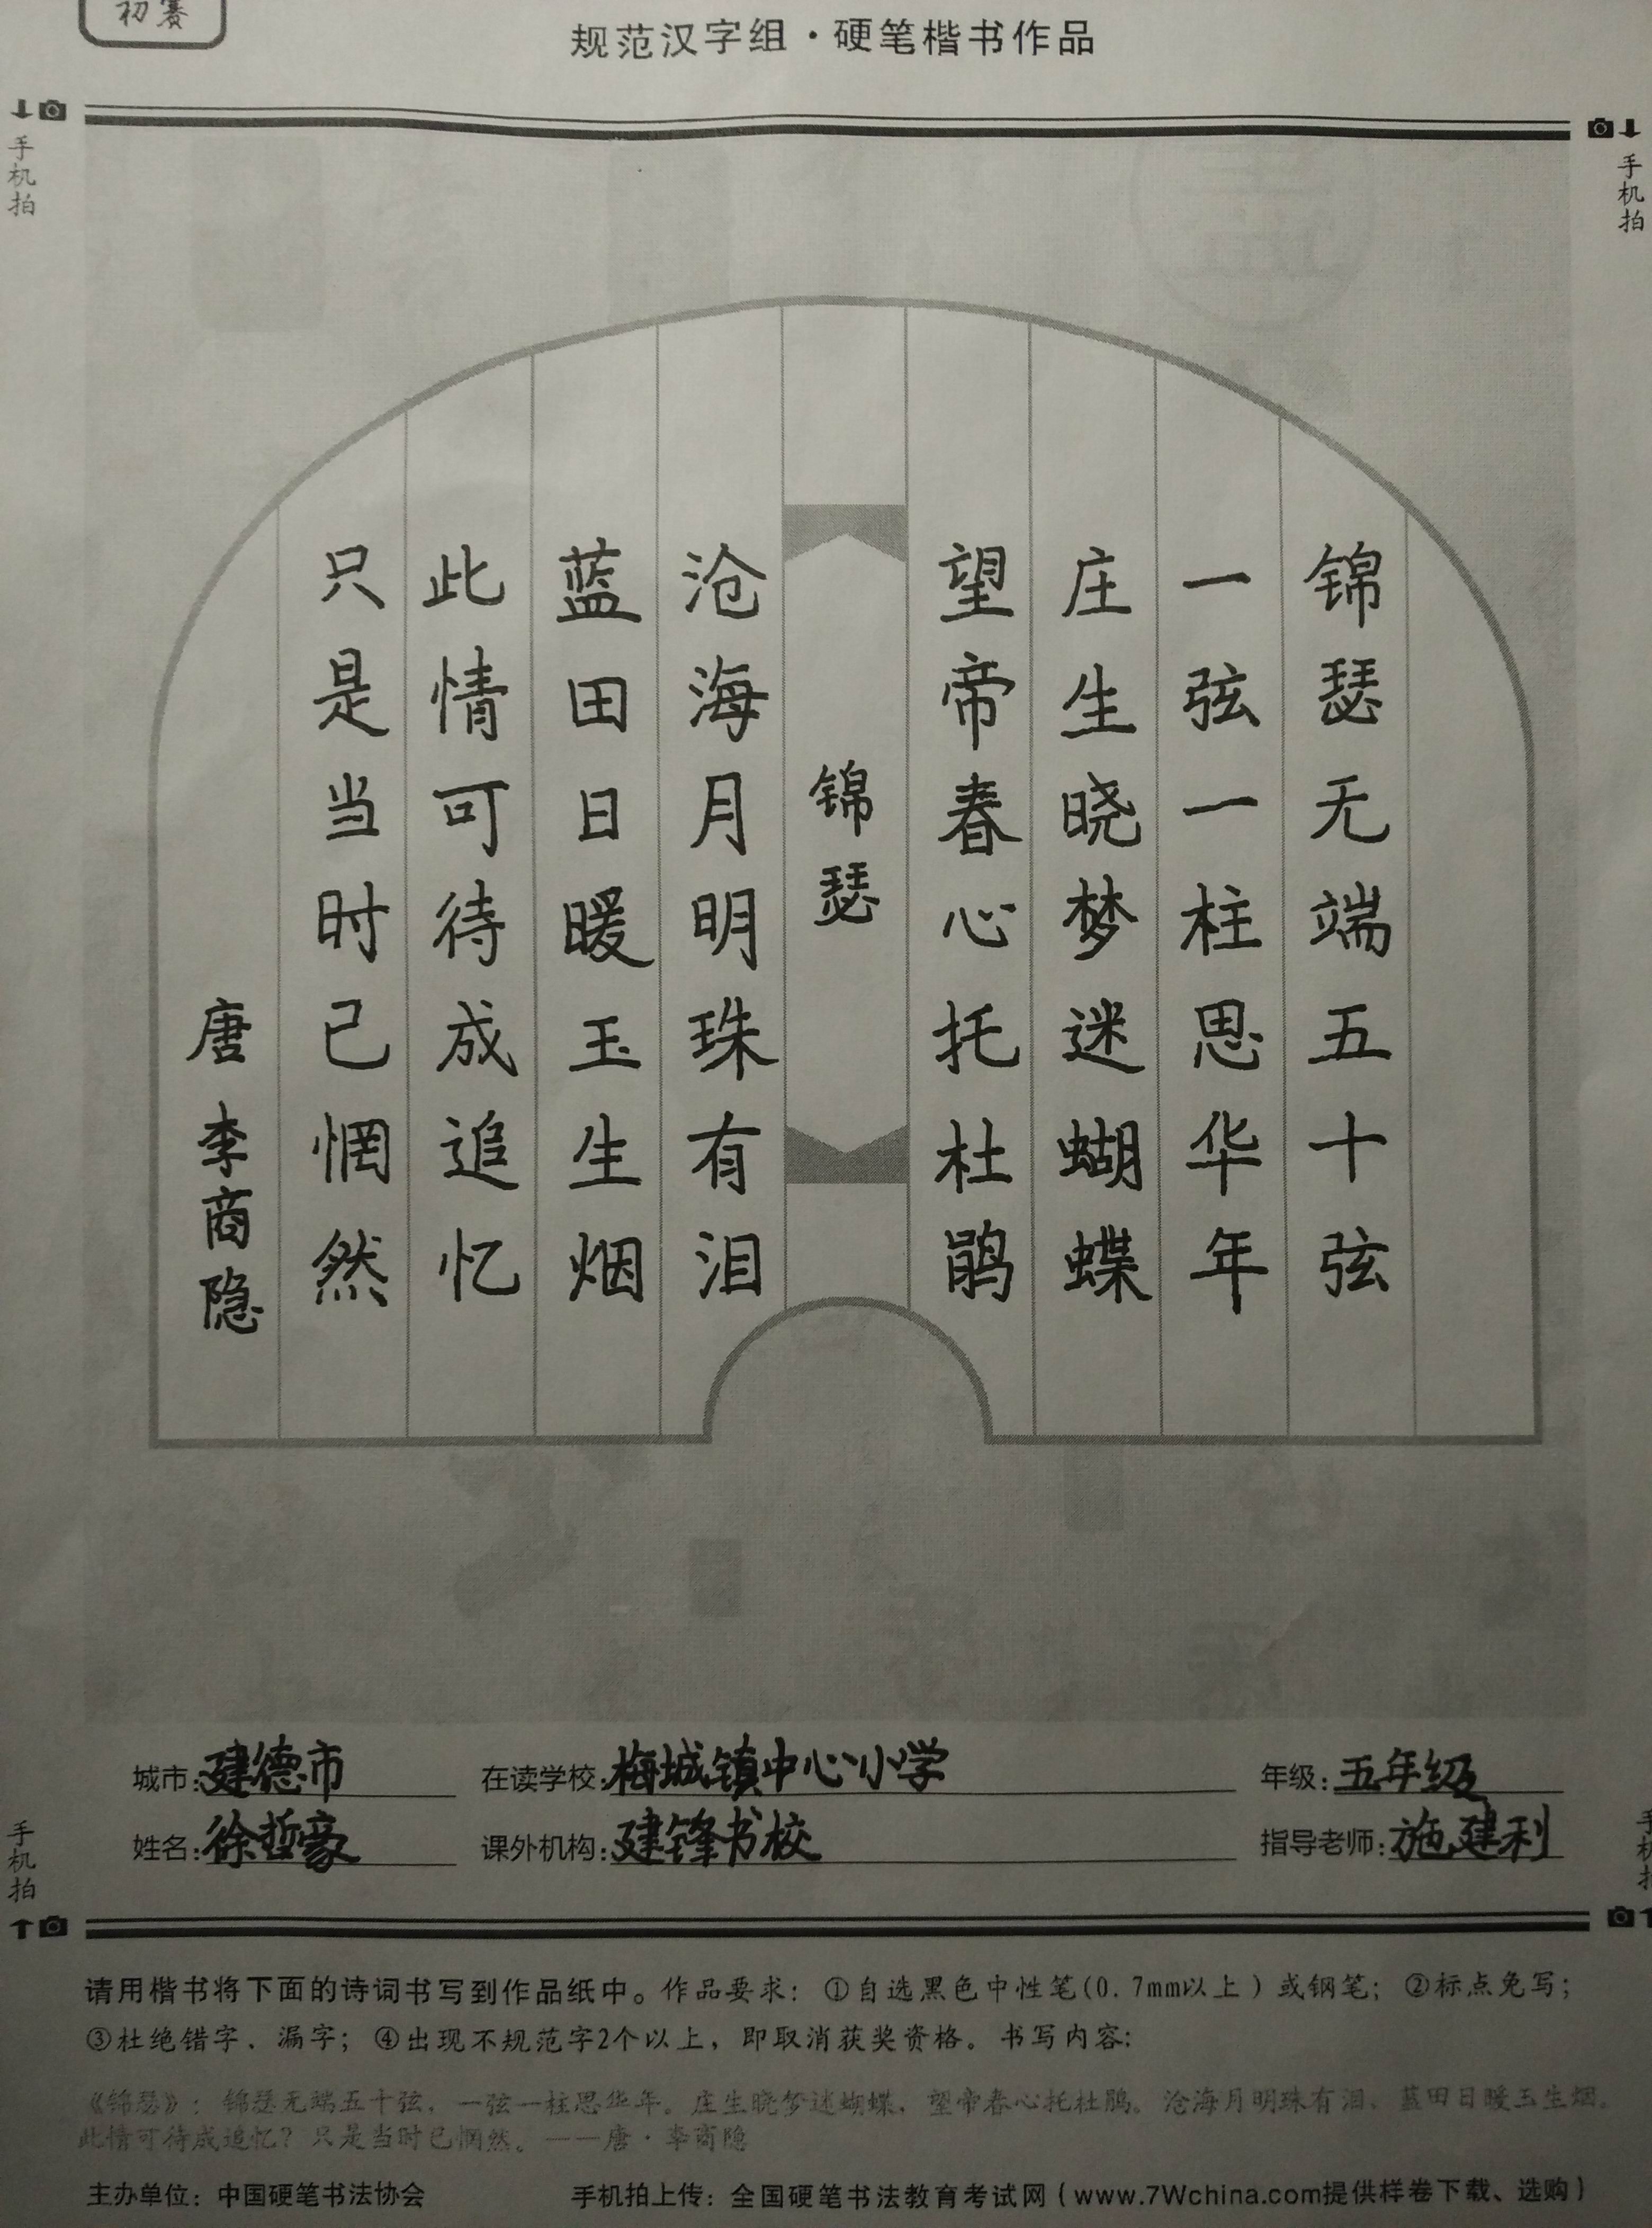 初赛
规范汉字组·硬笔楷书作品
手机拍
手机拍
锦瑟无端五十弦
一弦一柱思华年
庄生晓梦迷蝴蝶
望帝春心托杜鹃
锦瑟
沧海月明珠有泪
蓝田日暖玉生烟
此情可待成追忆
只是当时已惘然
唐 李商隐
城市:建德市 在读学校:梅城镇中心小学 年级:五年级
姓名:徐哲豪 课外机构:建锋书校 指导老师:施建利
手机拍
手机拍
请用楷书将下面的诗词书写到作品纸中。作品要求：①自选黑色中性笔(0.7mm以上)或钢笔；②标点免写；
③杜绝错字、漏字；④出现不规范字2个以上，即取消获奖资格。书写内容:
《锦瑟》：锦瑟无端五十弦，一弦一柱思华年。庄生晓梦迷蝴蝶，望帝春心托杜鹃。沧海月明珠有泪，蓝田日暖玉生烟。
此情可待成追忆？只是当时已惘然。——唐·李商隐
主办单位：中国硬笔书法协会 手机拍上传：全国硬笔书法教育考试网（www.7Wchina.com提供样卷下载、选购）